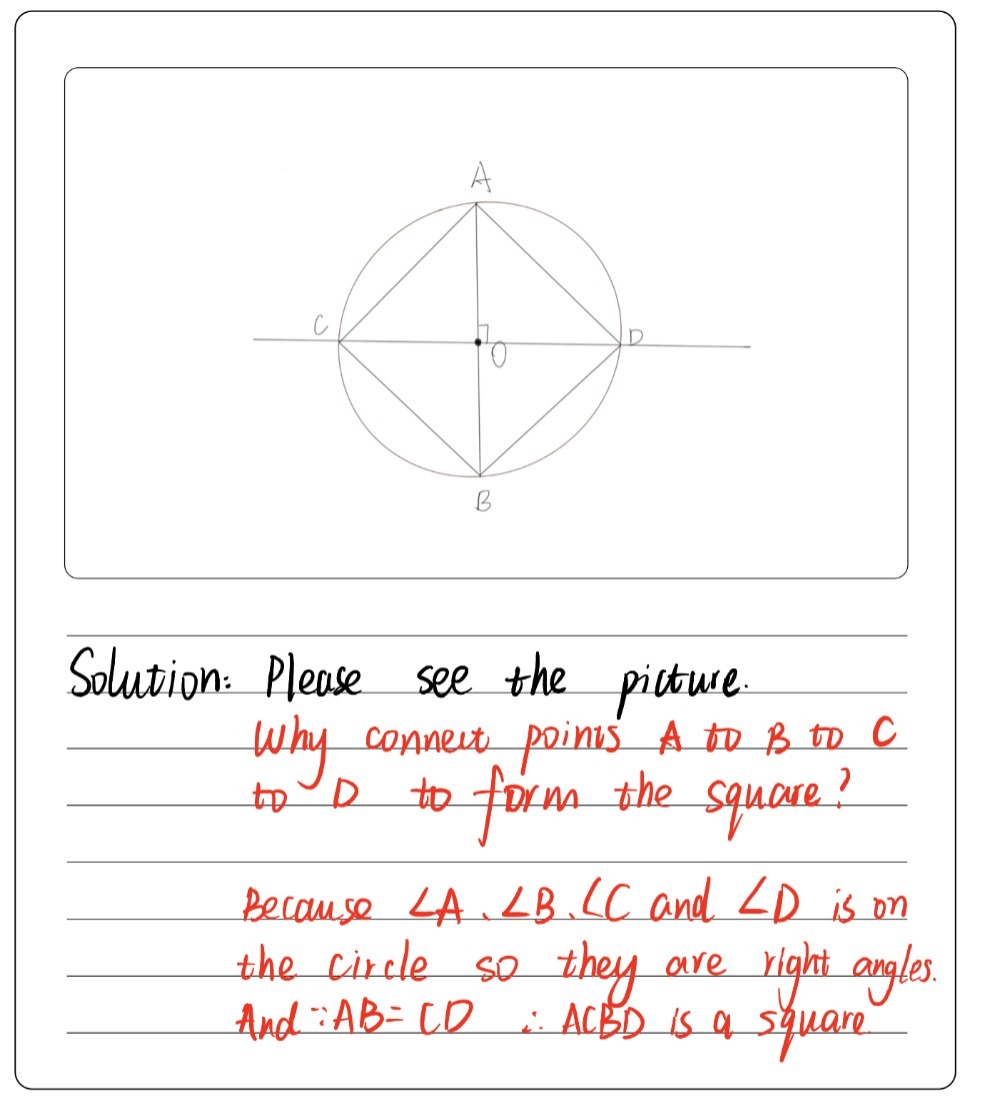 A
C
D
O
B
Solution: Please see the picture.
Why connect points A to B to C
to D to form the square?
Because ∠A、∠B、∠C and ∠D is on
the circle so they are right angles.
And ∵AB=CD ∴ ACBD is a square.